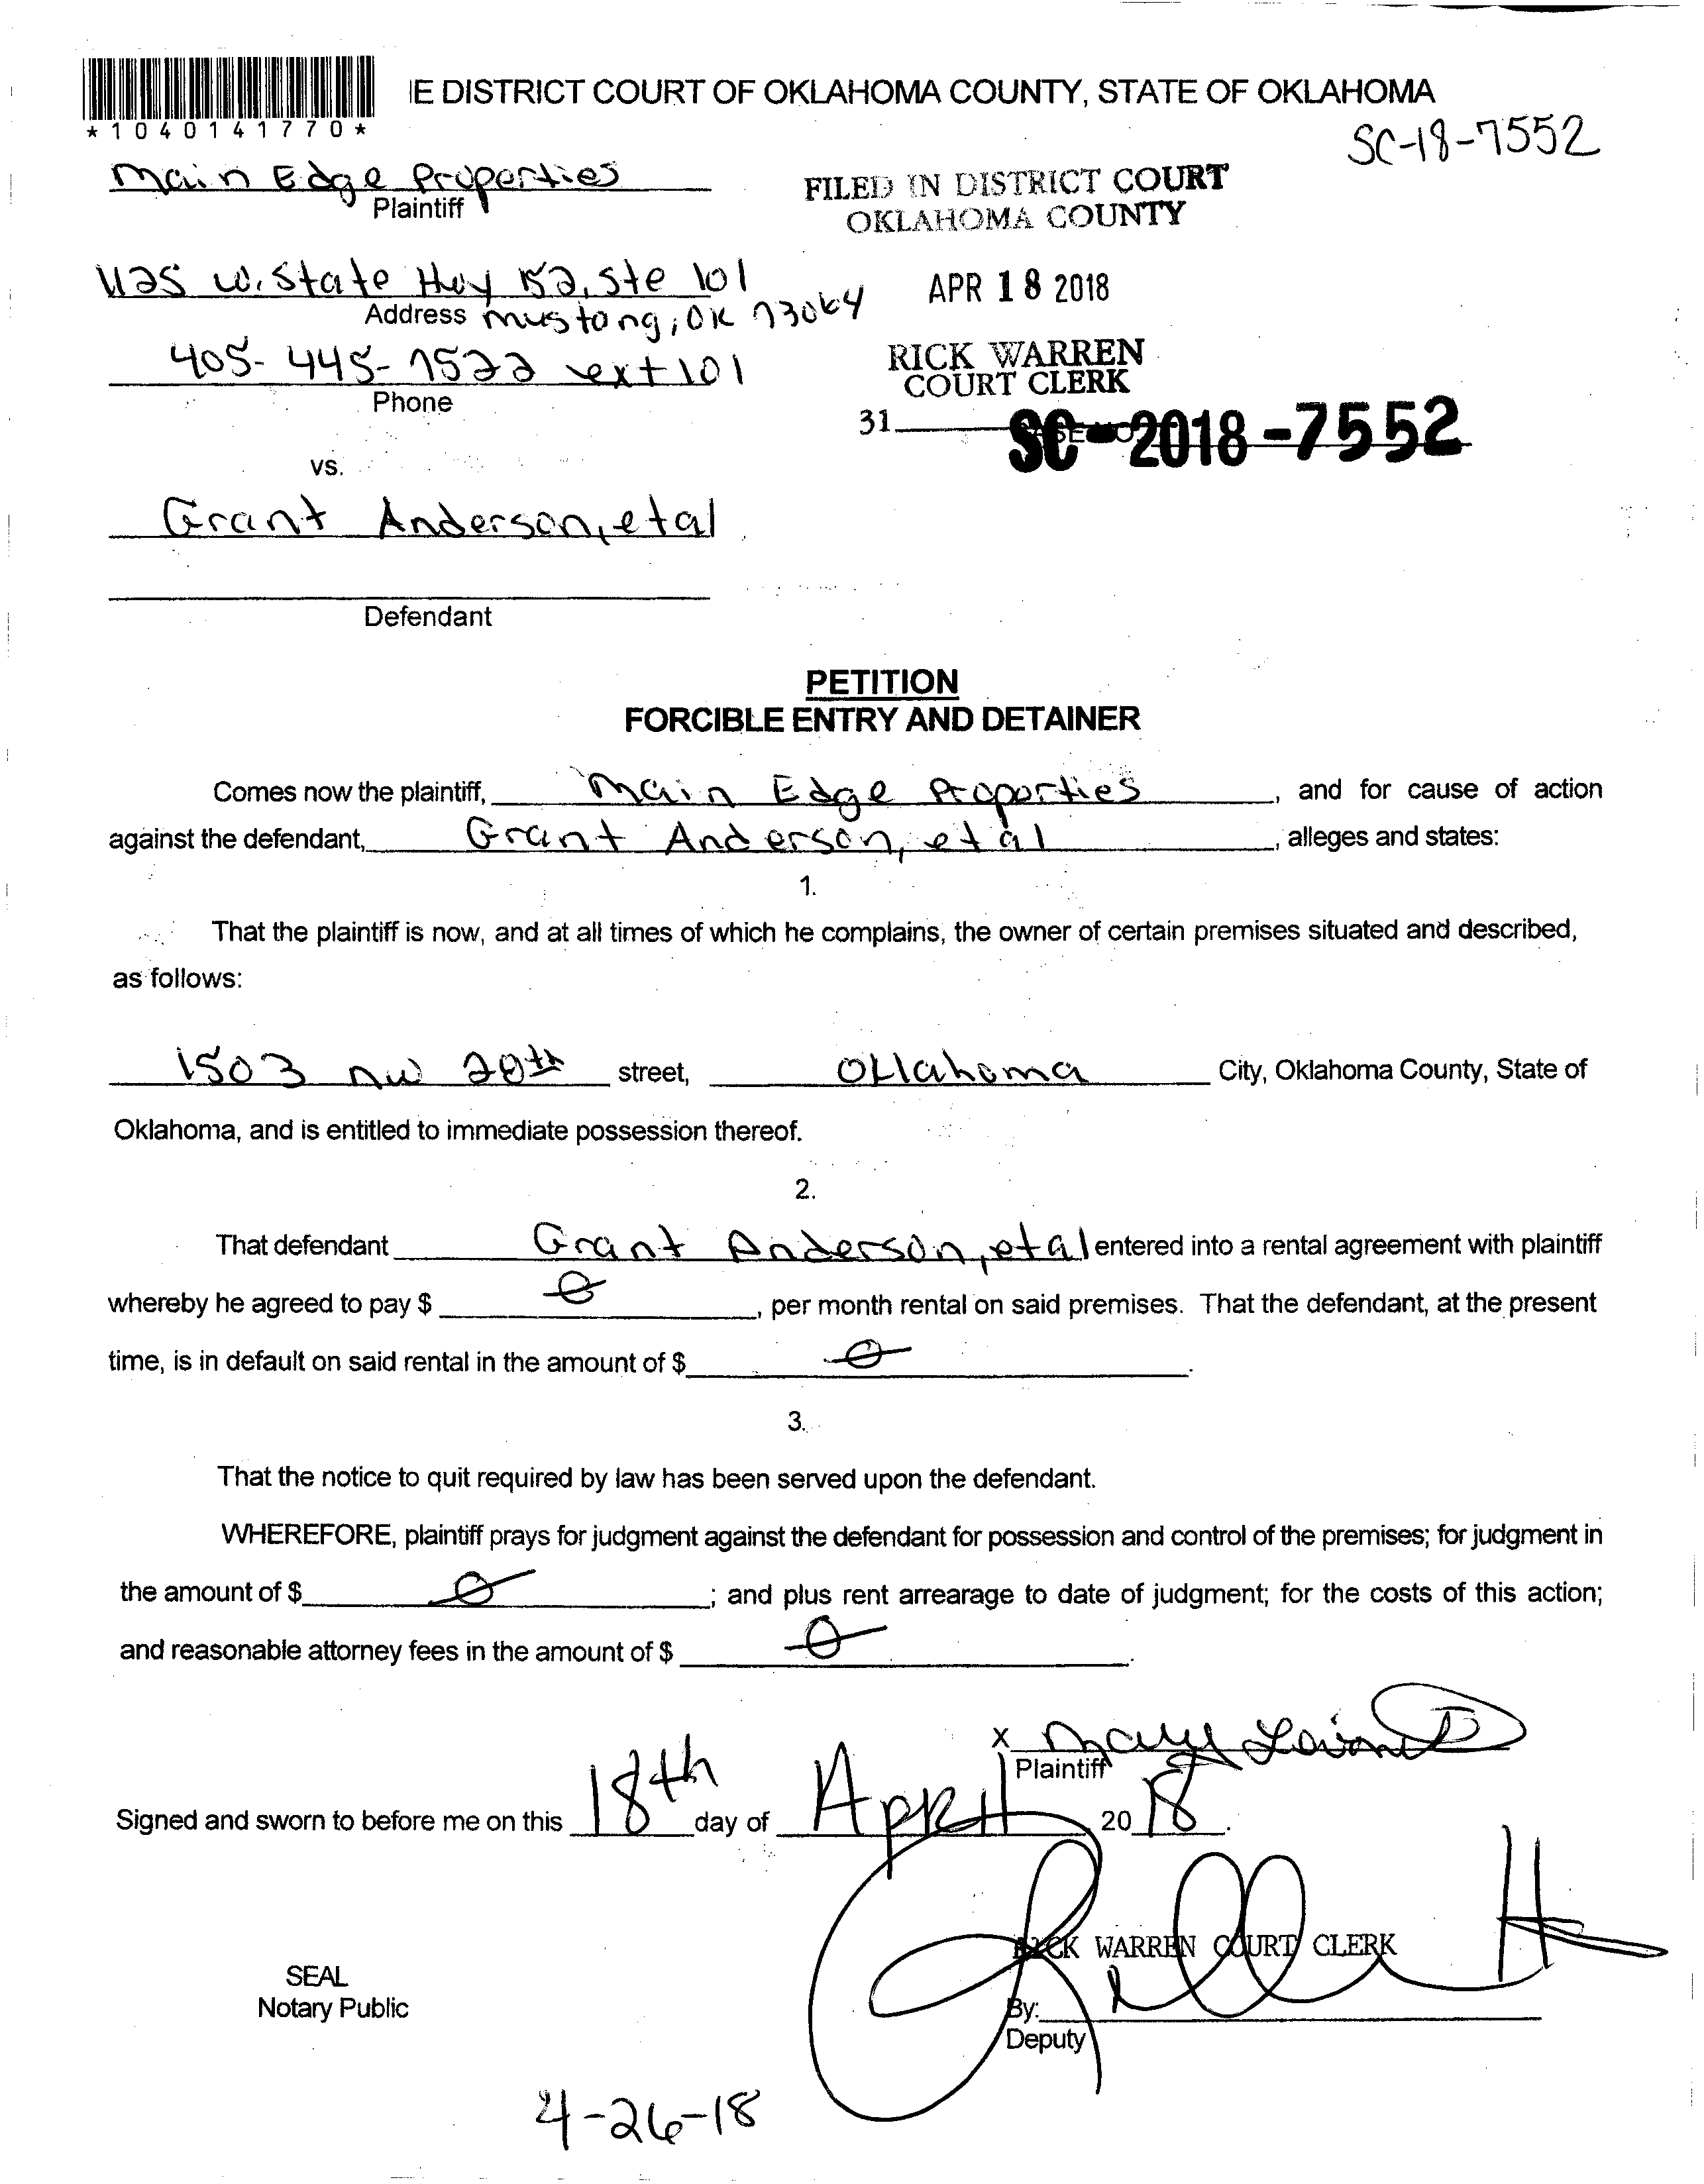 IE DISTRICT COURT OF OKLAHOMA COUNTY, STATE OF OKLAHOMA
*1040141770*
SC-18-7552
Main Edge Properties
Plaintiff
FILED IN DISTRICT COURT
OKLAHOMA COUNTY
1125 W. State Hwy 152, Ste 101
Address Mustang, OK 73064
APR 18 2018
405-445-7522 ext 101
Phone
RICK WARREN
COURT CLERK
31
SC-2018-7552
vs.
Grant Anderson, etal
Defendant
PETITION
FORCIBLE ENTRY AND DETAINER
Comes now the plaintiff, Main Edge Properties, and for cause of action
against the defendant, Grant Anderson, et al, alleges and states:
1.
That the plaintiff is now, and at all times of which he complains, the owner of certain premises situated and described,
as follows:
1503 NW 20th street, Oklahoma City, Oklahoma County, State of
Oklahoma, and is entitled to immediate possession thereof.
2.
That defendant Grant Anderson, et al entered into a rental agreement with plaintiff
whereby he agreed to pay $ 0, per month rental on said premises. That the defendant, at the present
time, is in default on said rental in the amount of $ 0.
3.
That the notice to quit required by law has been served upon the defendant.
WHEREFORE, plaintiff prays for judgment against the defendant for possession and control of the premises; for judgment in
the amount of $ 0; and plus rent arrearage to date of judgment; for the costs of this action;
and reasonable attorney fees in the amount of $ 0.
X Mary
Plaintiff
Signed and sworn to before me on this 18th day of April 2018.
RICK WARREN COURT CLERK
SEAL
Notary Public
By:
Deputy
4-26-18